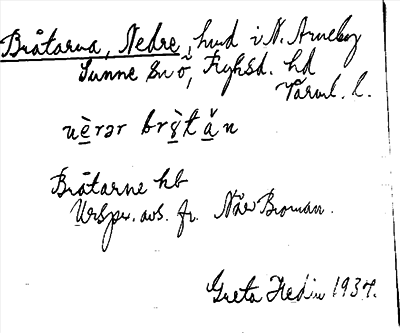 Bråtarna, Nedre, hmd i N. Arneby
Sunne sn ö, Fryksd. hd
Värml. l.
nèrər brὸ̣tǎn
Bråtarne hb
Urspr. avs. fr. När Broman.
Greta Hedin 1937.